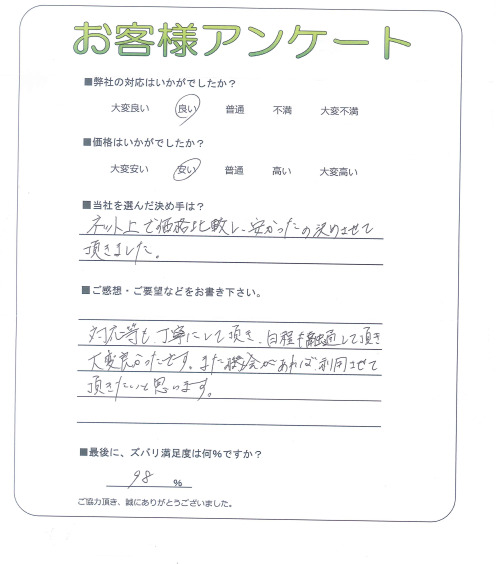 お客様アンケート
■弊社の対応はいかがでしたか？
大変良い 良い 普通 不満 大変不満
■価格はいかがでしたか？
大変安い 安い 普通 高い 大変高い
■当社を選んだ決め手は？
ネット上で価格比較し、安かったの決めさせて
頂きました。
■ご感想・ご要望などをお書き下さい。
対応等も、丁寧にして頂き、日程も融通して頂き
大変良かったです。また機会があれば、利用させて
頂きたいと思います。
■最後に、ズバリ満足度は何%ですか？
98 %
ご協力頂き、誠にありがとうございました。